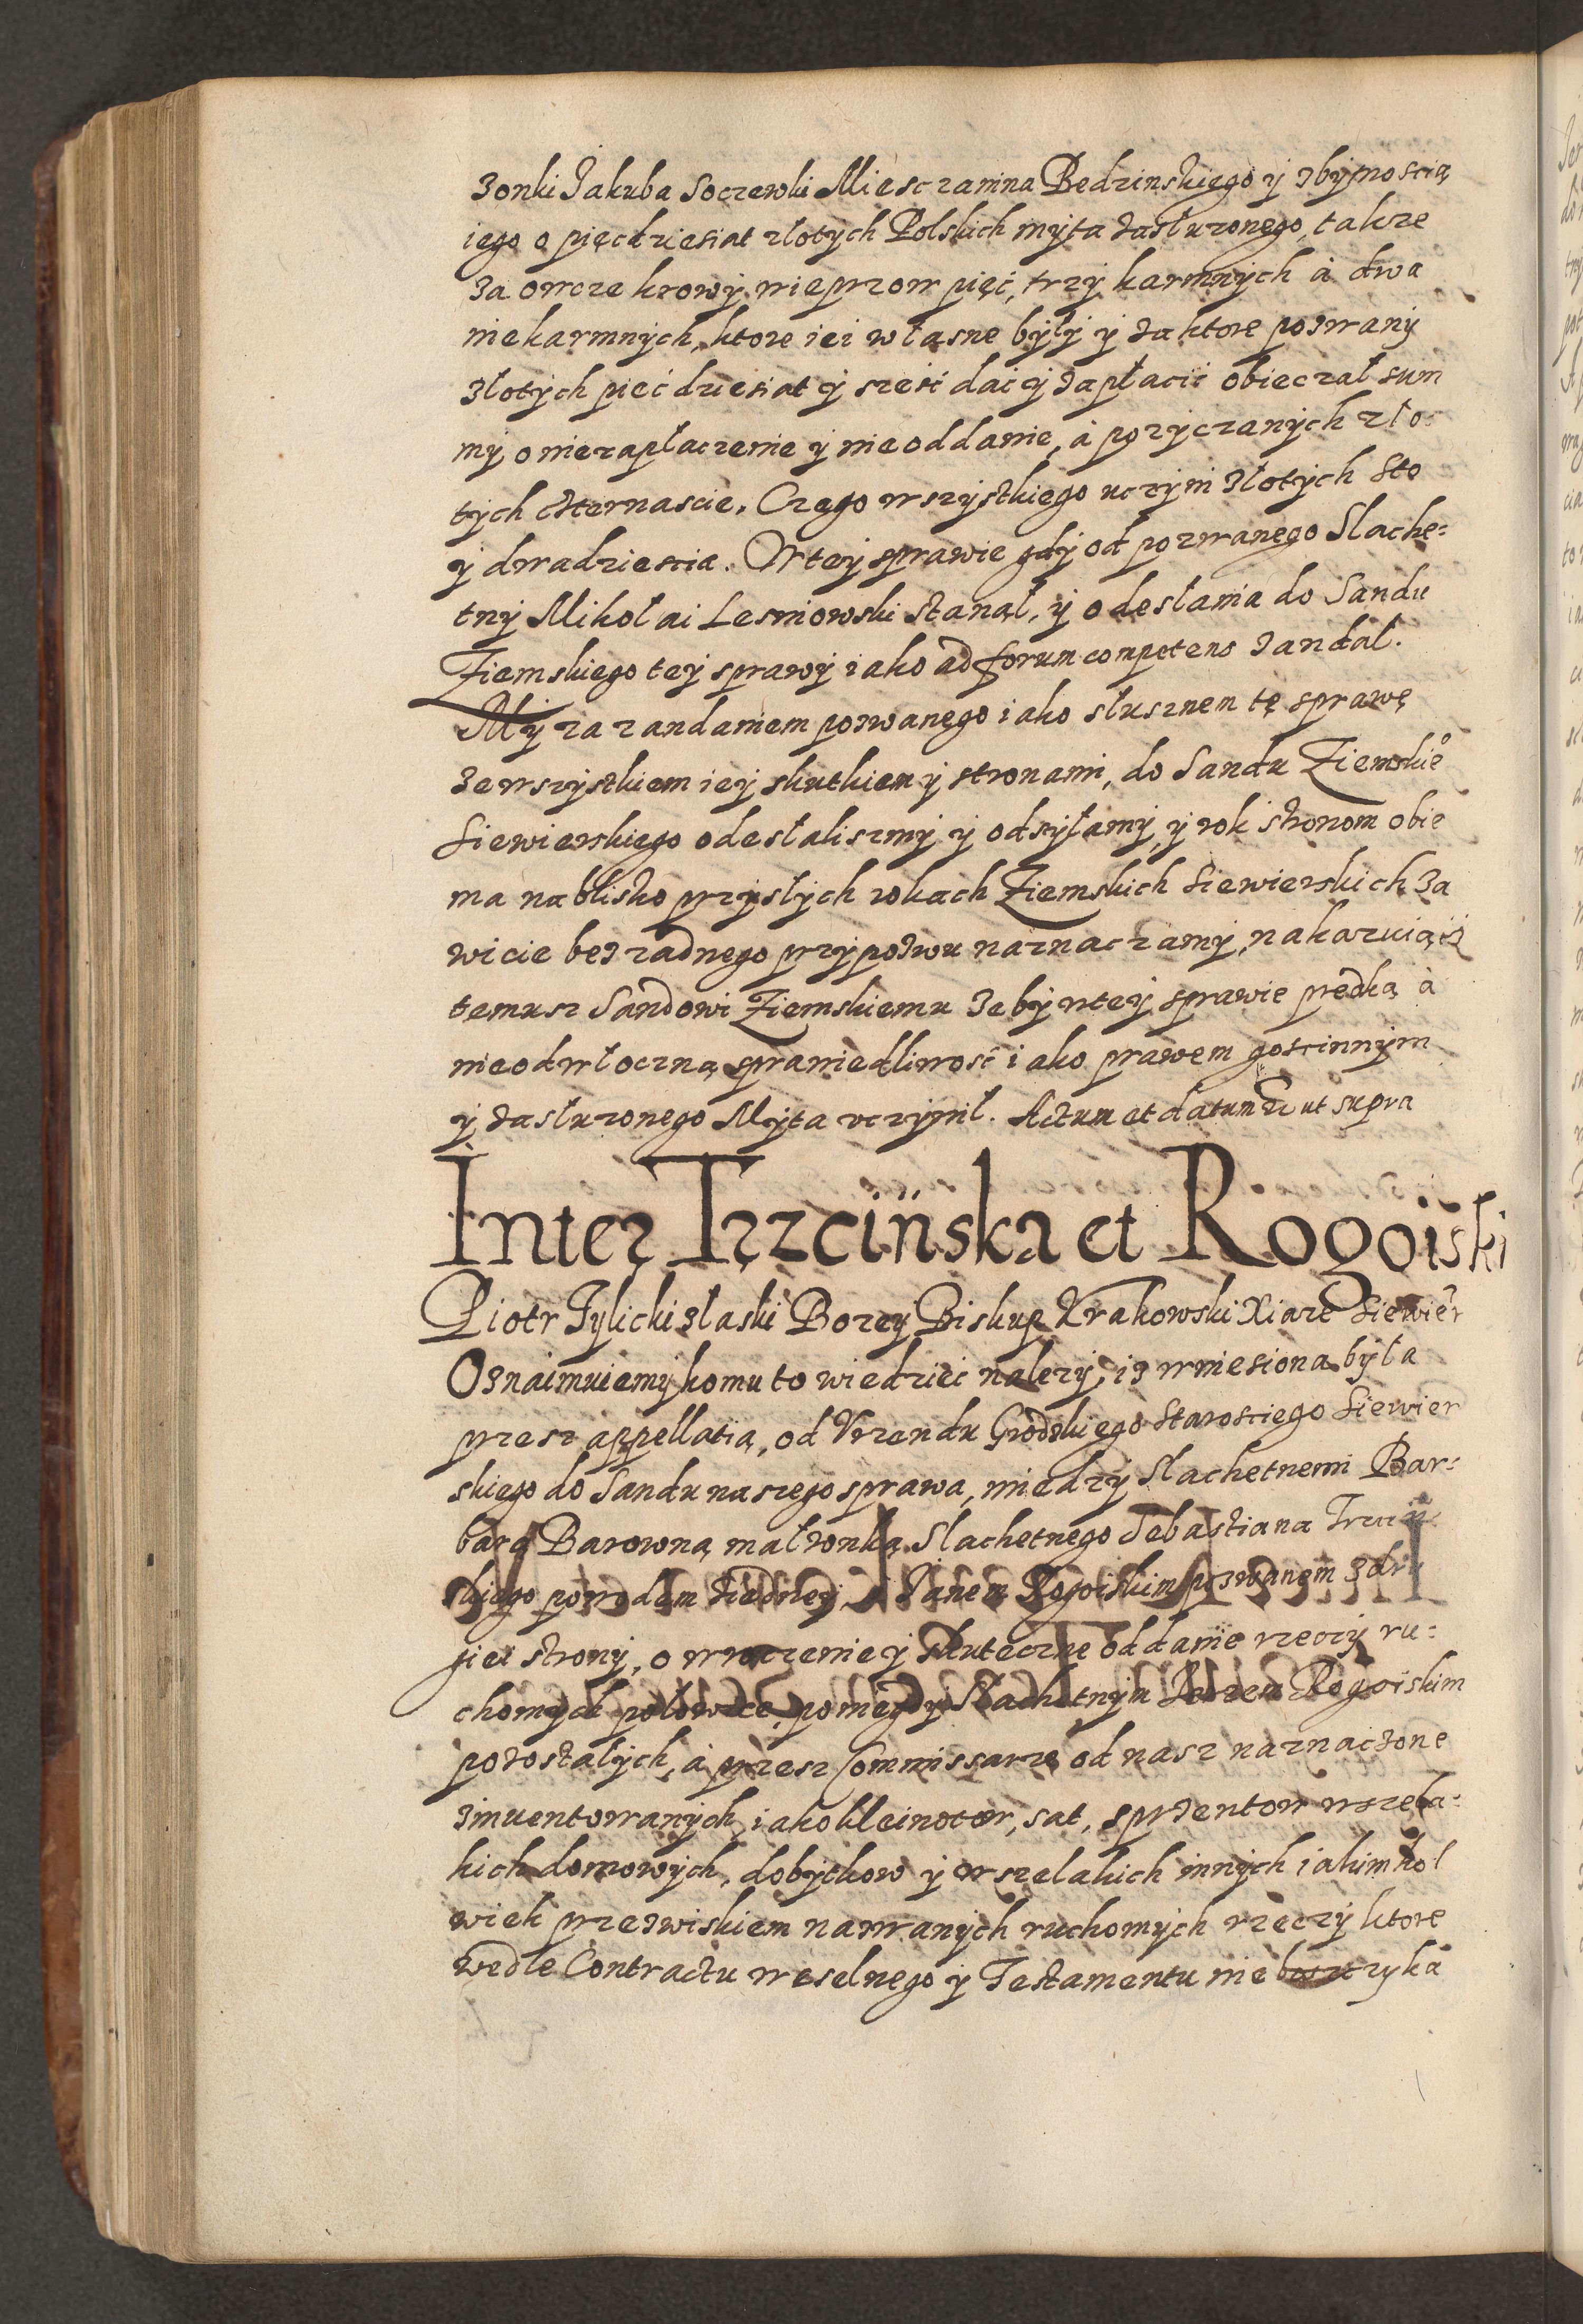 zonki Jakuba Soczewki Miesczanina Bedzinskiego ÿ z bÿtnoscią
iego o pięcdziesiat złotÿch Polskich mÿta zasłuzonego, takze
za owcze krowÿ, wieprzow pięć, trzÿ karmnÿch à dwa
niekarmnÿch, ktore iei własne bÿłÿ ÿ za ktore pozwanÿ
złotÿch pieć dziesiat ÿ sześć dać ÿ zapłacić obieczał sum
mÿ o niezapłaczenie ÿ nieoddanie, à pozÿczanÿch zło-
tÿch czternascie. Czego wszÿstkiego uczÿni złotÿch sto
ÿ dwadziescia. W teÿ sprawie gdÿ od pozwanego Slache=
tnÿ Mikołai Lesniowski stanął, ÿ odesłania do Sandu
Ziemskiego teÿ sprawÿ iako ad forum competens zandał.
Mÿ za zandaniem pozwanego iako słusznem tę sprawę
ze wszÿstkiem ieÿ skutkiem ÿ stronami, do Sandu Ziemskie°
Siewierskiego odesłaliszmÿ ÿ odsÿłamÿ, ÿ rok stronom obie
ma na blisko przÿsłÿch rokach Ziemskich Siewierskich za
wicie bez zadnego przÿpozwu naznaczamÿ, nakazuiącz
temusz Sandowi Ziemskiemu zebÿ w teÿ sprawie prędką à
nieodwłoczną sprawiedliwość iako prawem goscinnÿm
ÿ zasłuzonego Mÿta uczÿnił. Actum et datum ut supra
Inter Trzcinska et Rogoiski
Piotr Tylicki z łaski Bozeÿ Biskup Krakowski Xiaze Siewier
Oznaimuiemÿ komu to wiedzieć nalezÿ, iz wniesiona bÿła
przesz appellatią, od Vrzendu Grodskiego Starosciego Siewier
skiego do Sandu naszego sprawa, miedzÿ Slachetnemi Bar=
barą Barowną małzonką Slachetnego Sebastiana Trzcin
skiego powodem z iedneÿ, à Janem Rogoiskim pozwanem z dru
giei stronÿ, o wroczenie ÿ skuteczne oddanie rzeczÿ ru=
chomÿch połowice, pomiędzÿ Slachetnÿm Rogoiskim
pozostałÿch, à przesz Commissarze od nasz naznaczone
zinuentowanÿch, iako kleinotow, sat, sprzentow wszela=
kich domowÿch, dobÿtkow ÿ wszelakich innÿch iakimkol
wiek przezwiskiem nazwanÿch ruchomÿch rzeczÿ ktore
wedle Contractu weselnego ÿ Testamentu nieboszczyka